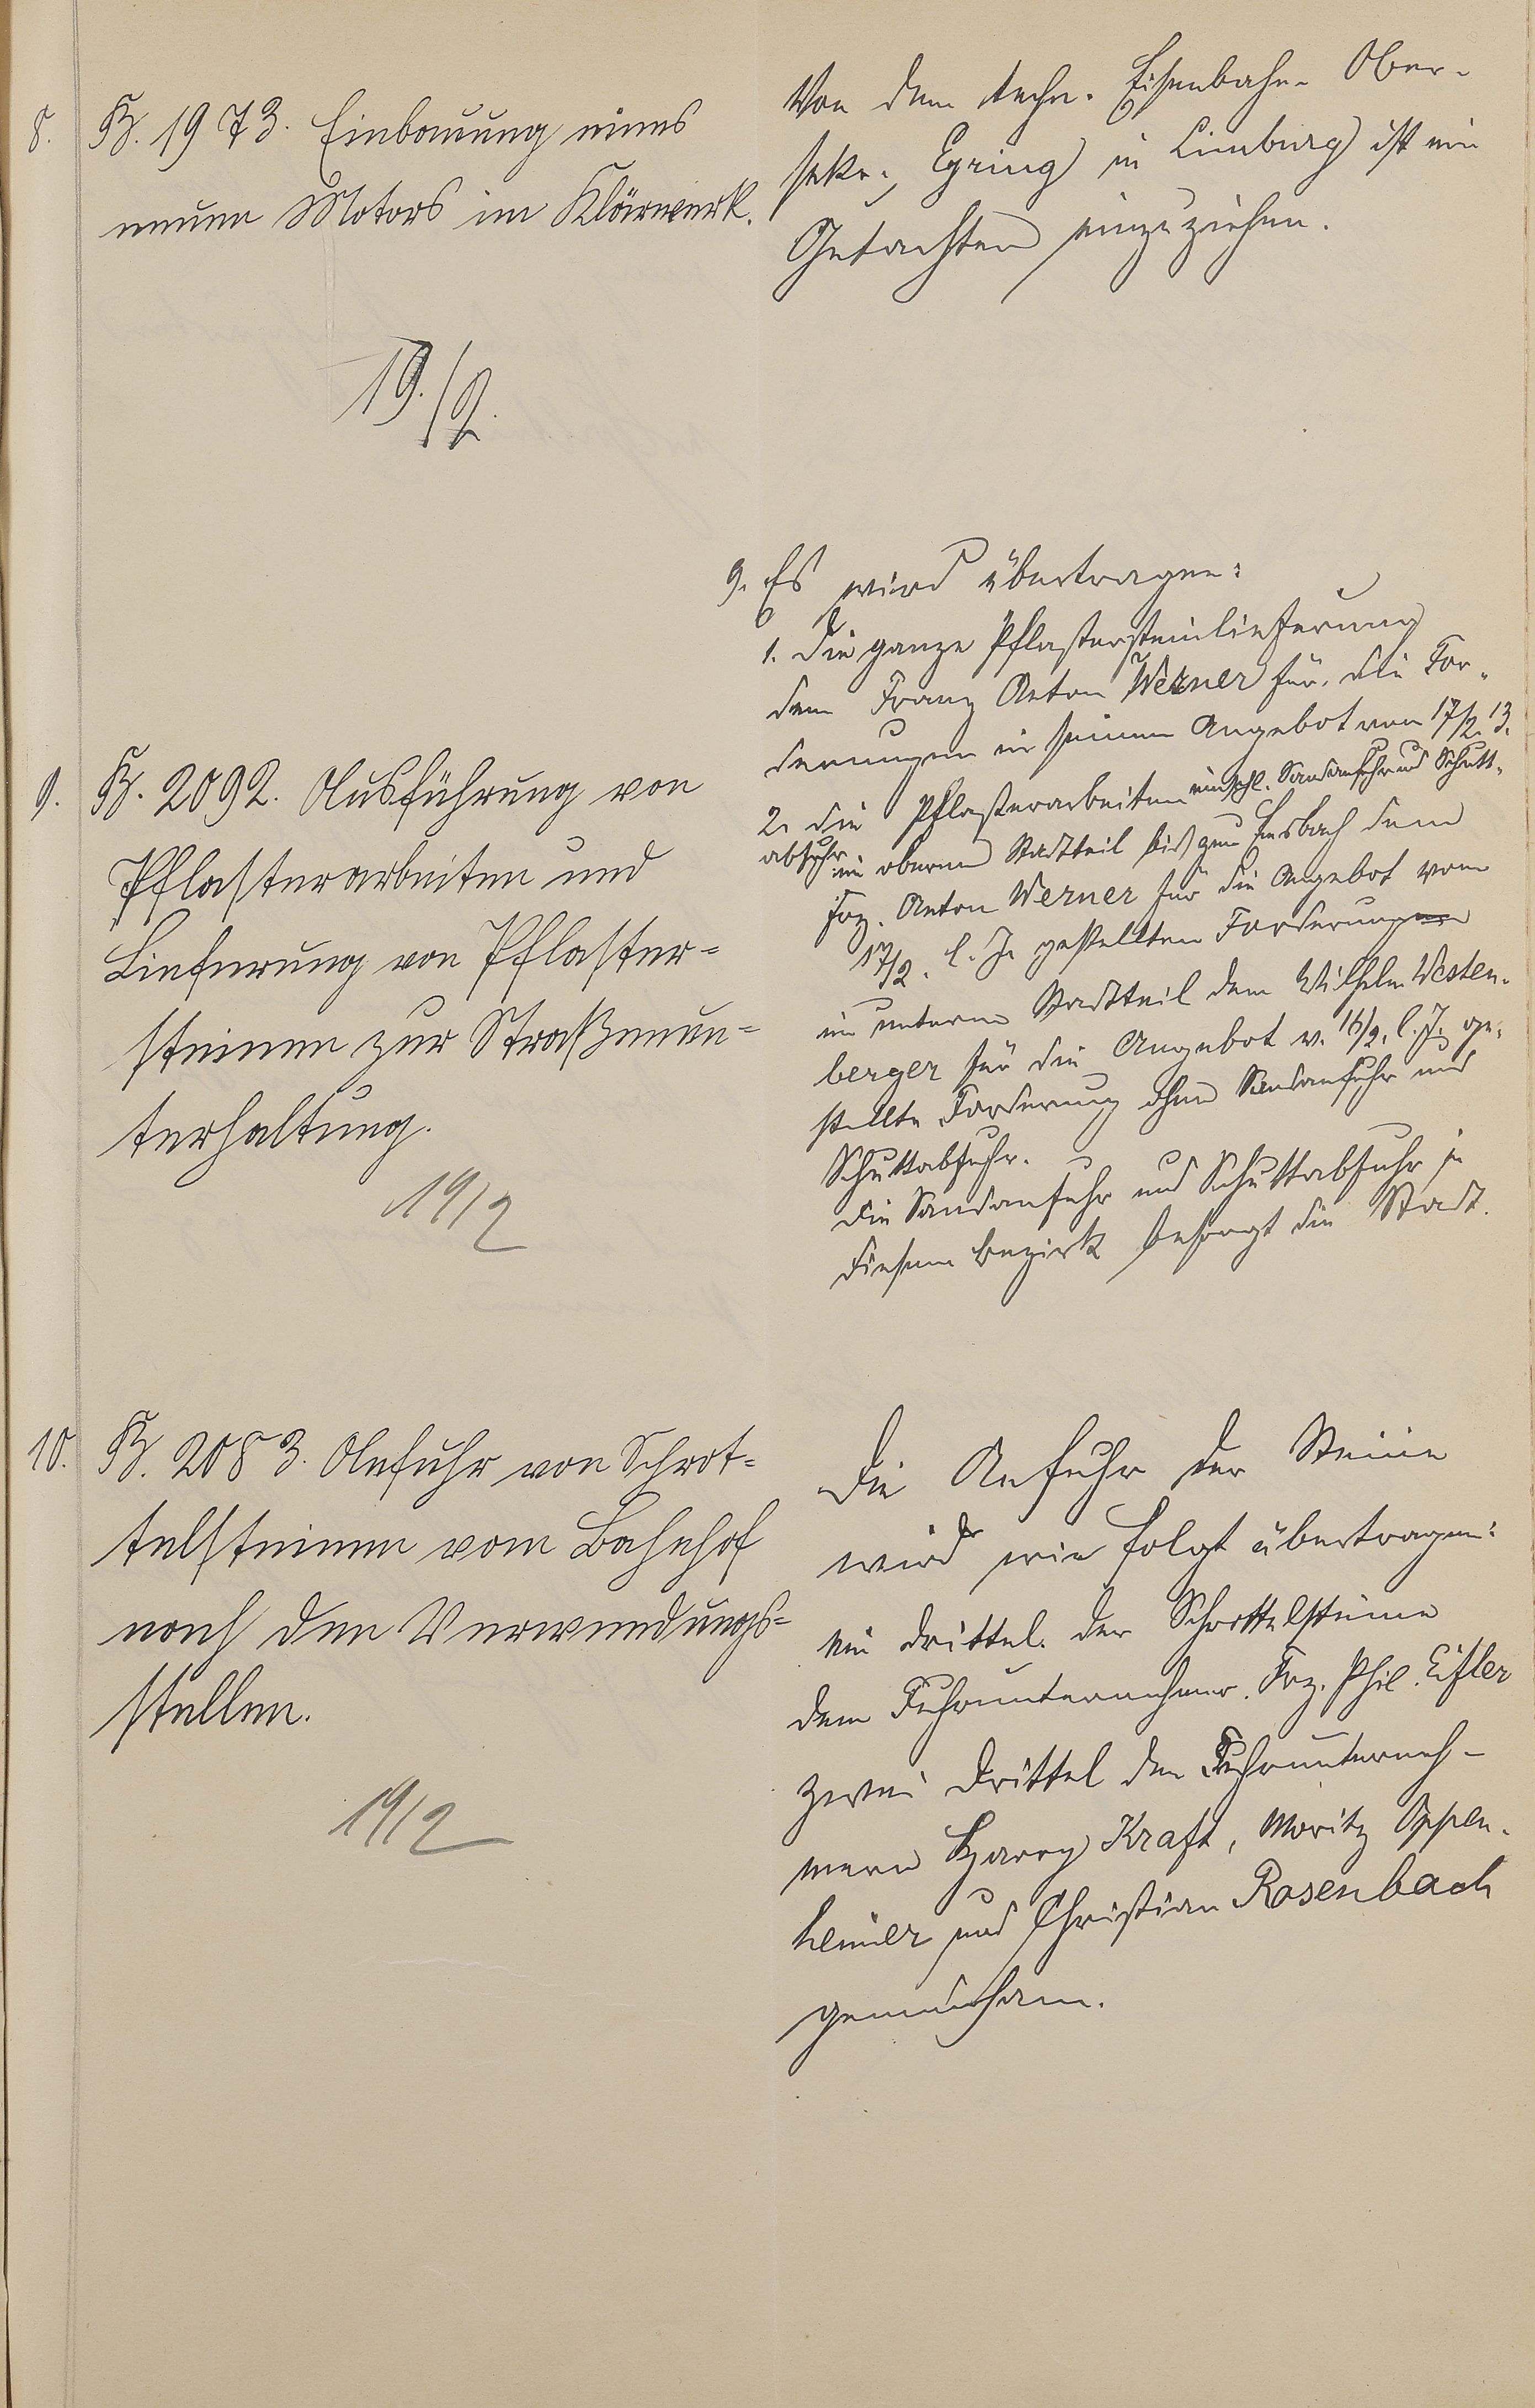 8. B. 1973. Einbauung eines
neuen Motors im Klärwerk.
19./2.
Von dem techn. Eisenbahn-Ober-
sekr., Egring in Limburg ist ein
Gutachten einzuziehen.
9. B. 2092. Ausführung von
Pflasterarbeiten und
Lieferung von Pflaster-
steinen zur Straßenun-
terhaltung.
19/2
9. Es wird übertragen:
1. die ganze Pflastersteinlieferung
dem Franz Anton Werner für die For-
derungen in seinem Angebot vom 17/2. 13.
2. die Pflasterarbeiten einschl. Sandanfuhr und Schutt-
abfuhr im oberen Stadtteil bis zum dem
Frz. Anton Werner für die Angebot vom
17/2. l. J. gestellten Forderungen
im unteren Stadtteil dem Wilhelm Westen-
berger für die Angebot v. 16/2. l. J. ge-
stellte Forderung ohne Sandanfuhr und
Schuttabfuhr.
Die Sandanfuhr und Schuttabfuhr in
diesem Bezirk besorgt die Stadt.
10. B. 2083. Anfuhr von Schrot-
telsteinen vom Bahnhof
nach den Verwendungs-
stellen.
19/2
Die Anfuhr der Steine
wird wie folgt übertragen:
ein Drittel der Schrottelsteine
dem Fuhrunternehmer Frz. Phil. Eifler
zwei Drittel den Fuhrunterneh-
mern Harry Kraft, Moritz Oppen-
heimer und Christian Rosenbach
gemeinsam.